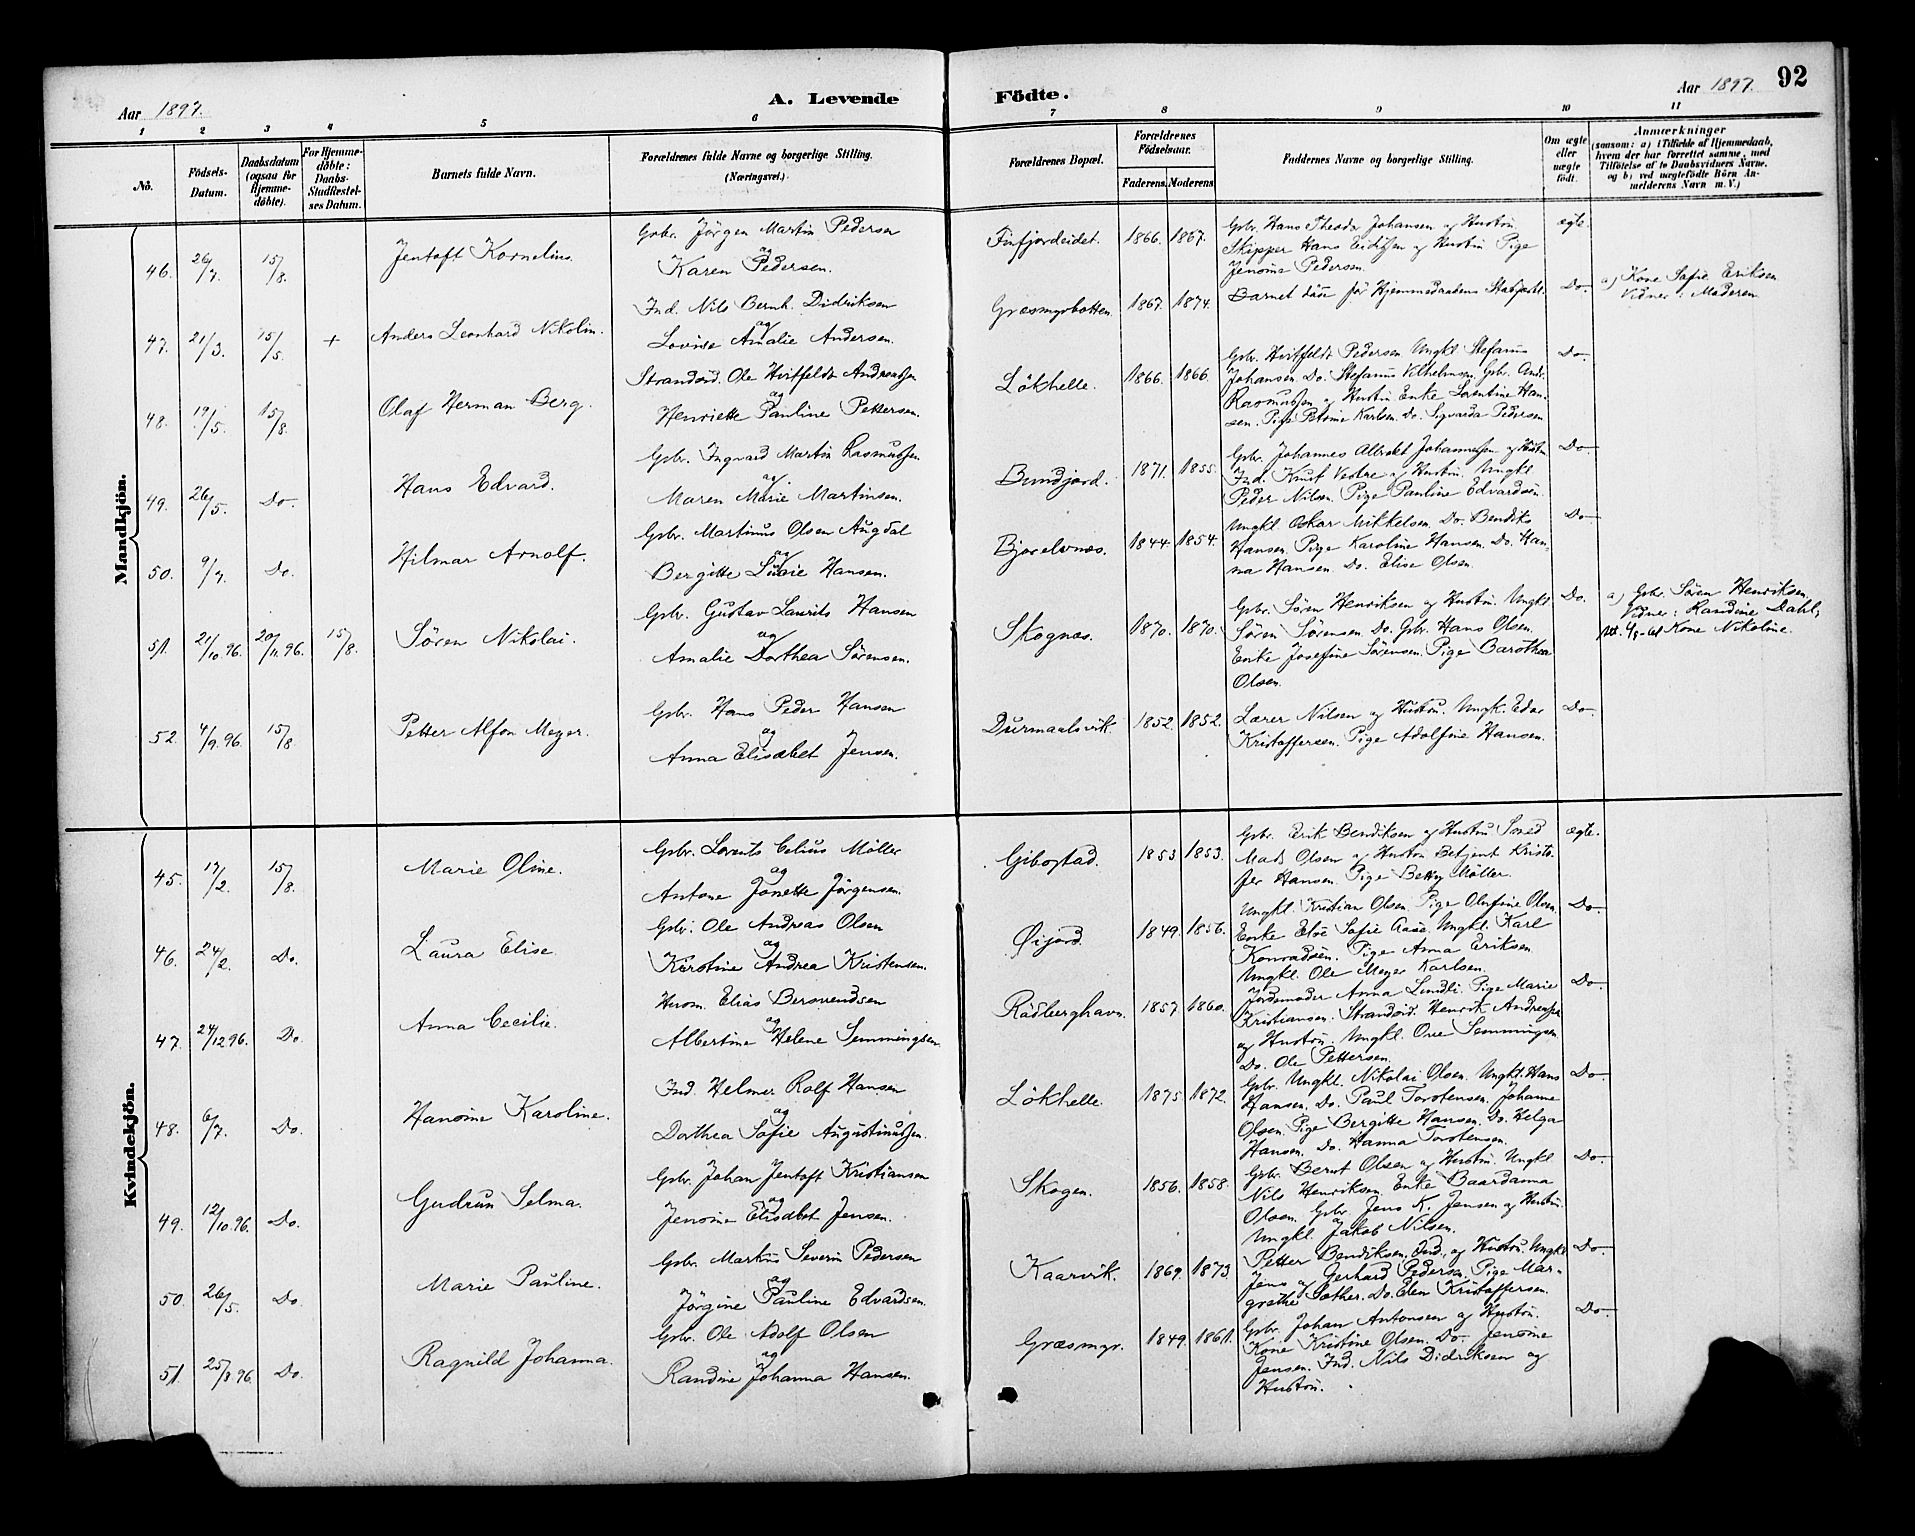 Aar 1897.
A. Levende Födte.
Aar 1897.
92
1 2 3 4 5 6 7 8 9 10 11
Nô.
Födsels-Datum.
Daabsdatum (ogsaa for Hjemme-döbte).
For Hjemme-döbte: Daabs-Stadfæstel-ses Datum.
Barnets fulde Navn.
Forældrenes fulde Navne og borgerlige Stilling. (Næringsvei.)
Forældrenes Bopæl.
Forældrenes Födselsaar.
Faderens. Moderens.
Faddernes Navne og borgerlige Stilling.
Om ægte eller uægte födt.
Anmærkninger
(saasom: a) i Tilfælde af Hjemmedaab,
hvem der har forrettet samme, med
Tilföielse af to Daabsvidners Navne.
og b) ved uægtefödte Börn An-
melderens Navn m. V.)
Mandkjön.
46. 26/7. 15/8. Jentoft Kornelius. Gbr. Jörgen Martin Pedersen og Karen Pedersen. Finfjordeidet. 1866. 1867. Gbr. Hans Theodor Johansen og Hustru
Skipper Hans Eidissen og Hustru Pige
Jensine Pedersen. ægte.
47. 21/3. 15/5. + Anders Leonhard Nikolin. Ind. Nils Bernh. Didriksen og Lovise Amalie Andersen. Græsmyrbotten. 1867. 1874. Barnet döde för Hjemmedaabens Stadfæst. Do. a) Kone Sofie Eriksen
Vidner: Moderen
48. 19/5. 15/8. Olaf Herman Berg. Strandsid. Ole Hvitfeldt Andreassen og Henriette Pauline Pettersen. Lökhelle. 1866. 1866. Gbr. Hvitfeldt Pedersen. Ungkl. Stefanus
Johansen. Do. Stefanus Vilhelmsen. Gbr. And.
Rasmussen og Hustru Enke Lorentine Han-
sen. Pige Petrine Karlsen. Do. Sigvarda Pedersen Do.
49. 26/5. Do. Hans Edvard. Gbr. Ingvard Martin Rasmussen og Maren Marie Martinsen. Bundjord. 1871. 1855. Gbr. Johannes Albrekt Johannessen og Hustru
Ind. Knut Vedre og Hustru. Ungkl.
Peder Nilsen. Pige Pauline Edvardsen. Do
50. 9/7. Do. Hilmar Arnolf. Gbr. Martinus Olsen Augdal og Bergitte Lusie Hansen. Bjorelvnes. 1844. 1854. Ungkl. Oskar Mikkelsen. Do. Bendiks
Hansen. Pige Karoline Hansen. Do. Han-
na Hansen. Do. Elise Olsen. Do
51. 21/10.96. 20/11.96. 15/8. Sören Nikolai. Gbr. Gustav Laurits Hansen og Amalie Dorthea Sörensen. Skognes. 1870. 1870. Gbr. Sören Henriksen og Hustru. Ungkl.
Sören Sörensen. Do. Gbr. Hans Olsen.
Enke Josefine Sörensen. Pige Barothea
Olsen. Do. a) Gbr. Sören Henriksen.
Vidner: Randine Dahl,
Kone Nikoline.
52. 4/9.96. 15/8. Petter Alfon Meyer. Gbr. Hans Peder Hansen og Anna Elisabet Jensen. Durmaalsvik. 1852. 1852. Lærer Nilsen og Hustru. Ungk. Edv.
Kristoffersen. Pige Adolfine Hansen. Do.
Kvindekjön.
45. 17/2. 15/8. Marie Oline. Gbr. Lorents Celius Möller og Antone Jonette Jörgensen. Gibostad. 1853 1853. Gbr. Erik Bendiksen og Hustru Smed
Mads Olsen og Hustru Betjent Kristo-
fer Hansen. Pige Betty Möller. ægte.
46. 24/2. Do. Laura Elise. Gbr. Ole Andreas Olsen og Kirstine Andrea Kristensen. Öijord. 1849. 1856. Ungkl. Kristian Olsen. Pige Olufine Olsen.
Enke Else Sofie Aase. Ungkl. Karl
Konradsen. Pige Anna Eriksen
Ungkl. Ole Meyer Karlsen. Do.
47. 24/12 96. Do. Anna Cecilie. Husm. Elias Bersvendsen og Albertine Helene Semmingsen. Rödberghavn. 1857. 1860. Jordemoder Anna Lindli. Pige Marie
Kristiansen. Strandsid. Henrik Andreassen
og Hustru. Ungkl. Ove Semmingsen
Do. Ole Pettersen. Do
48. 6/7. Do. Hansine Karoline. Ind. Helmer Rolf Hansen og Dorthea Sofie Augustinussen. Lökhelle. 1875 1872. Gbr. Ungkl. Nikolai Olsen. Ungkl. Hans
Hansen. Do. Paul Torstensen. Johanne
Olsen. Pige Bergitte Hansen. Do. Helga
Hansen. Do. Hanna Torstensen. Do
49. 12/10.96. Do. Gudrun Selma. Gbr. Johan Jentoft Kristiansen og Jensine Elisabet Jensen. Skogen. 1856. 1858. Gbr. Bernt Olsen og Hustru. Ungkl
Nils Henriksen. Enke Baardanna
Olsen. Gbr. Jens K. Jensen og Hustru.
Ungkl. Jakob Nilsen. Do.
50. 26/5. Do. Marie Pauline. Gbr. Martin Severin Pedersen og Jörgine Pauline Edvardsen. Kaarvik. 1869. 1873. Petter Bendiksen. Ind. og Hustru. Ungkl
Jens og Gerhard Pedersen. Pige Mar-
grethe Sather. Do. Elen Kristoffersen. Do
51. 25/8 96. Do. Ragnild Johanna. Gbr. Ole Adolf Olsen og Randine Johanna Hansen. Græsmyr. 1849. 1861. Gbr. Johan Antonsen og Hustru.
Kone Kristine Olsen. Do. Jensine
Jensen. Ind. Nils Didriksen og
Hustru. Do